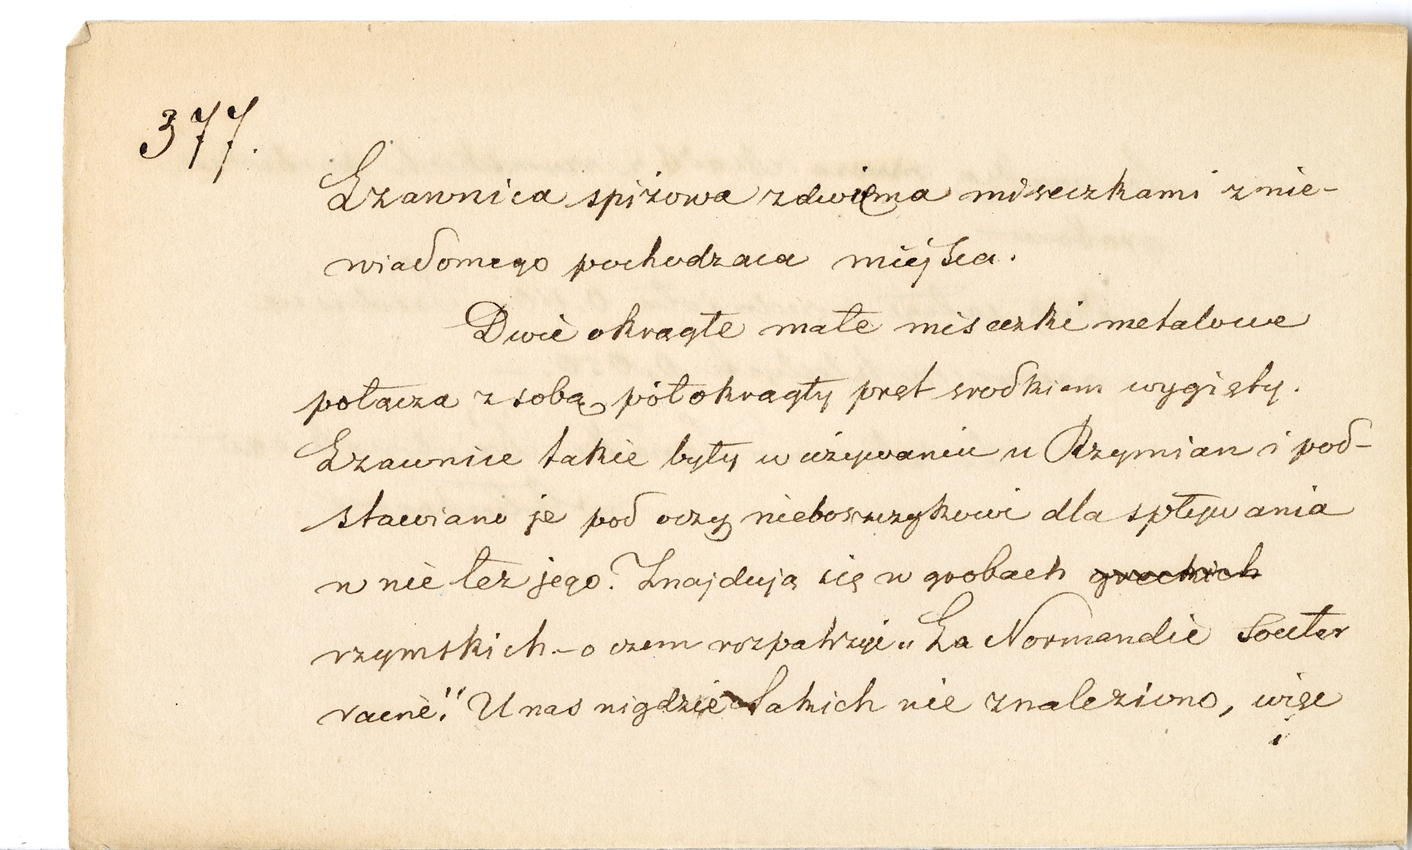 377.
Łzawnica spiżowa z dwiema miseczkami z nie-
wiadomego pochodzaca miejsca.
Dwie okrągłe małe miseczki metalowe
połącza z sobą półokrągły pręt srodkiem wygięty.
Łzawnice takie były w używaniu u Rzymian i pod-
stawiano je pod oczy nieboszczykowi dla spływania
w nie łez jego. Znajdują się w grobach greckich
rzymskich – o czem rozpatruje „La Normandie Souter
raine". U nas nigdzie takich nie znaleziono, więc
i